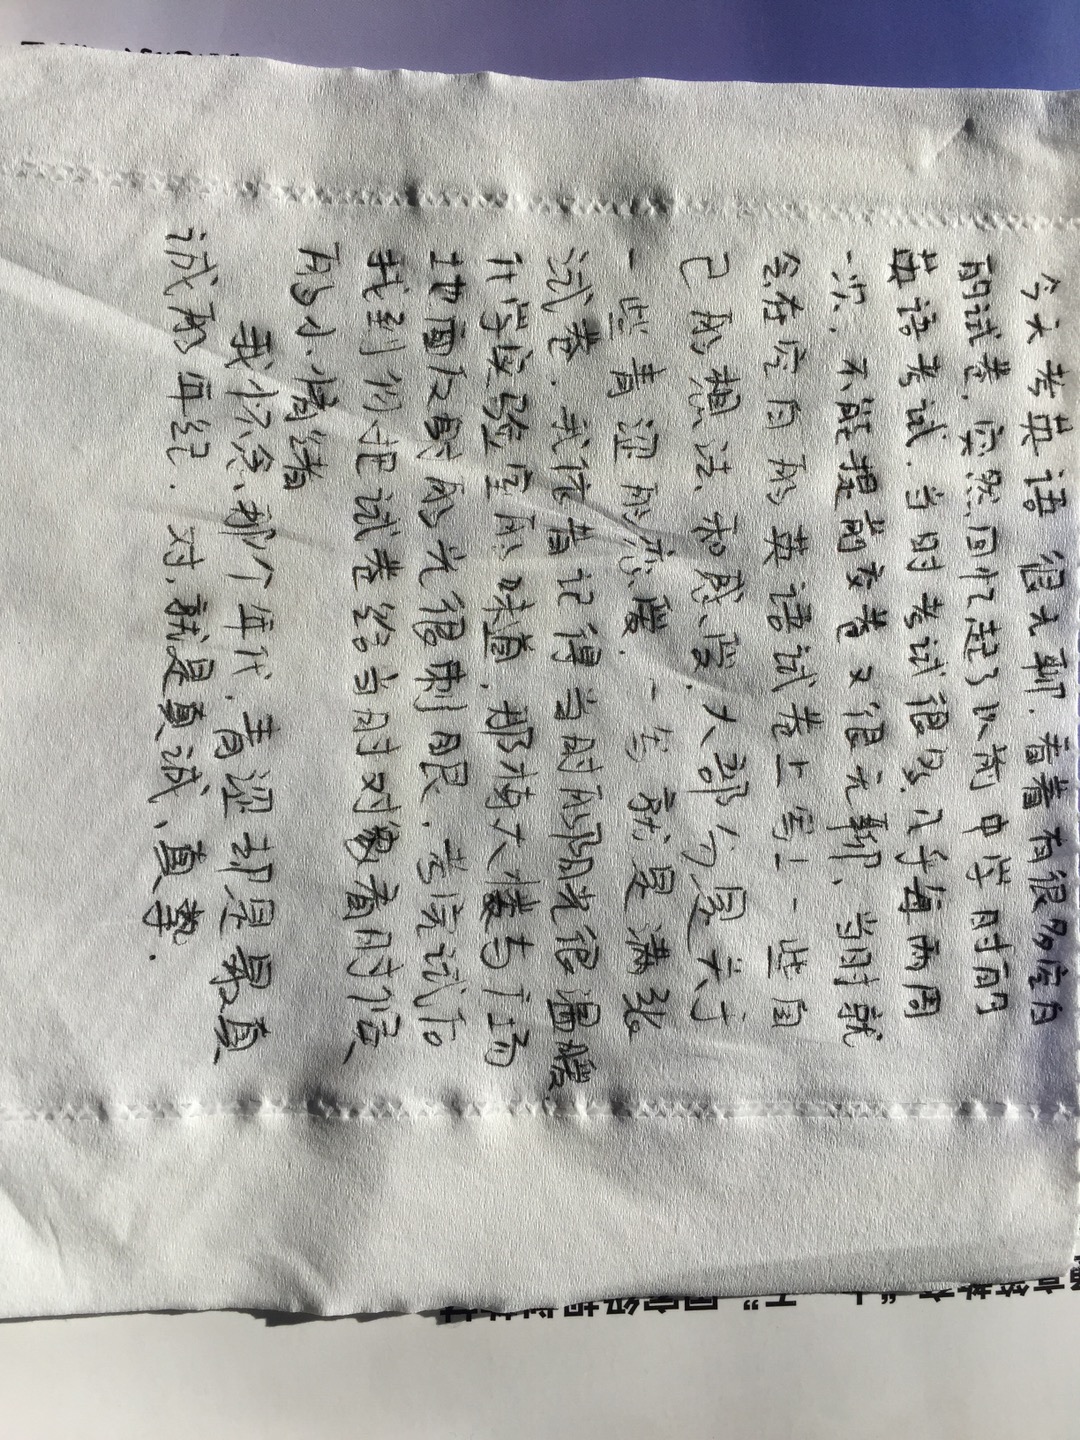 今天考英语 很无聊.看着有很多空白
的试卷.突然回忆起了以前中学时的
英语考试.当时考试很多.几乎每两周
一次.不能提前交卷又很无聊、当时就
会在空白的英语试卷上写上一些自
己的想法、和感受.大部分是关于
一些青涩的恋爱.一写就是满张
试卷.我依着记得当时的阳光很温暖.
计学实验室的味道.那栋大楼与广场
地面反射的光很刺眼.考完试后
我到们把试卷给当时对象看时候
的小情绪
我怀念、那个年代.青涩却是最真
诚的年纪.对.就是真诚、真挚.